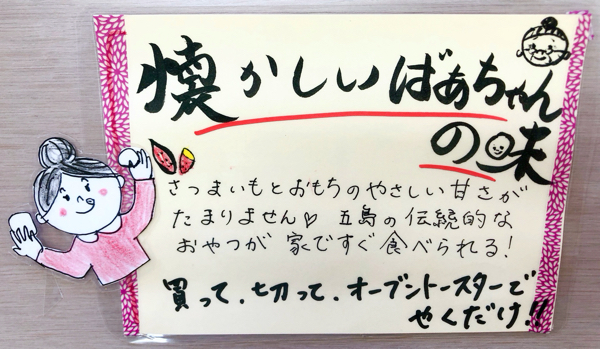 懐かしいばあちゃん
の味
さつまいもとおもちのやさしい甘さが
たまりません♡ 五島の伝統的な
おやつが 家ですぐ食べられる!
買って、切って、オーブントースターで
やくだけ!!